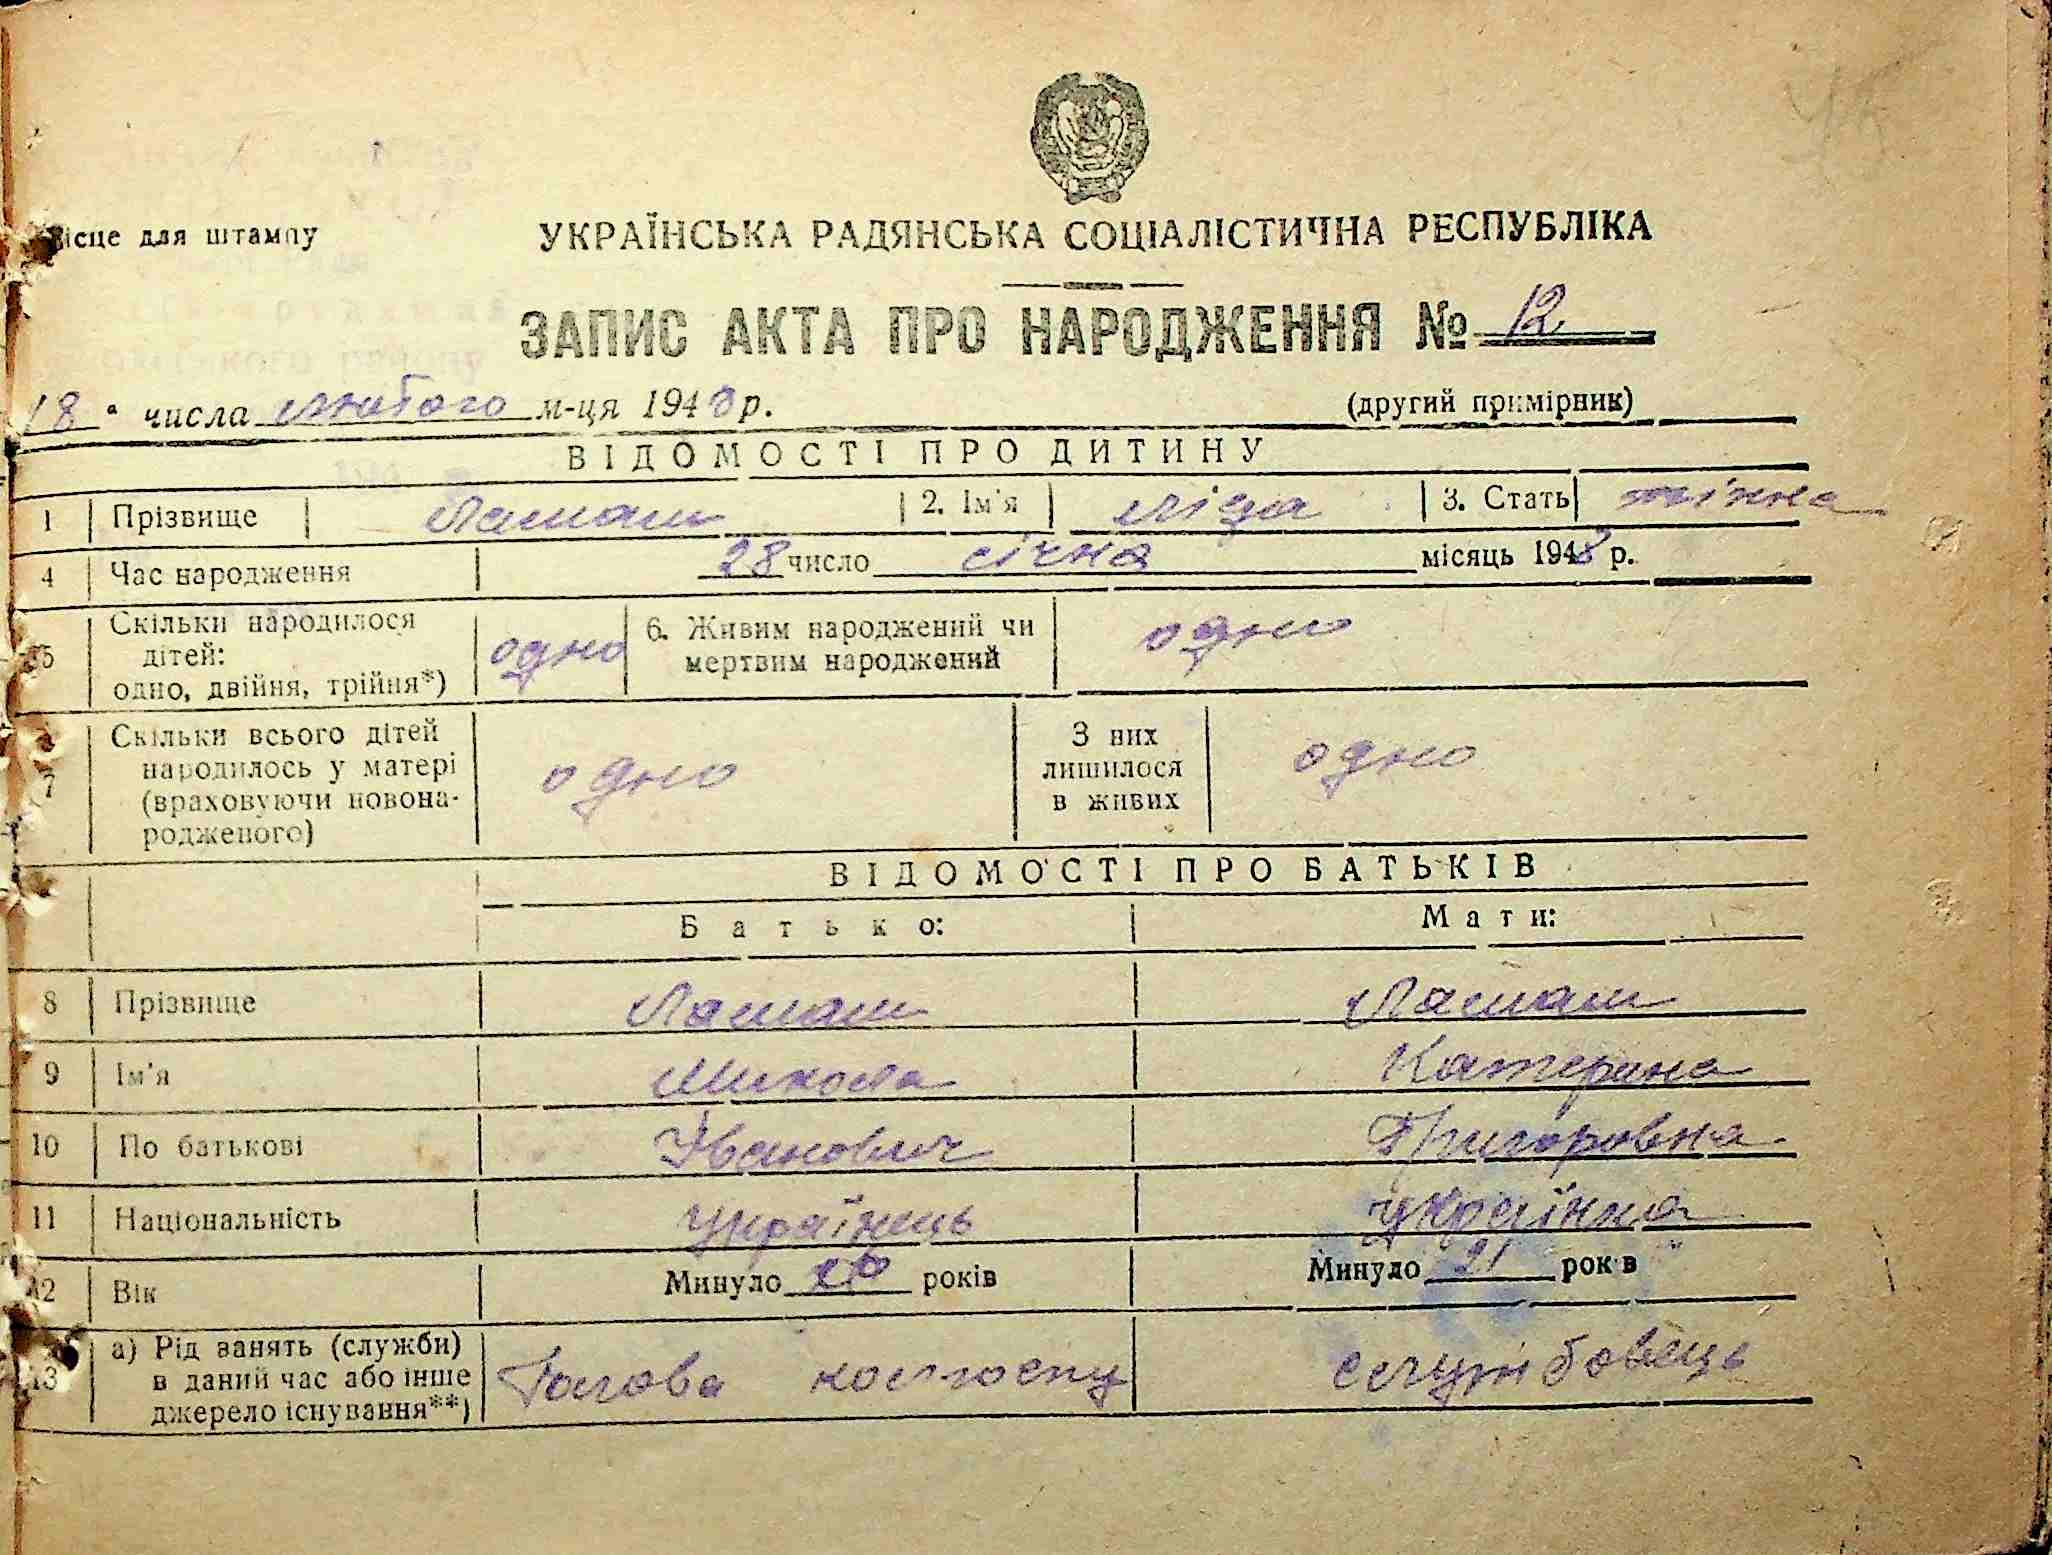 Місце для штампу
УКРАЇНСЬКА РАДЯНСЬКА СОЦІАЛІСТИЧНА РЕСПУБЛІКА
ЗАПИС АКТА ПРО НАРОДЖЕННЯ № 12
18 " числа лютого м-ця 1948 р. (другий примірник)
ВІДОМОСТІ ПРО ДИТИНУ
1 Прізвище Ламаш 2. Ім'я Ліда 3. Стать жіноча
4 Час народження 28 число січня місяць 1948 р.
5 Скільки народилося дітей: одно, двійня, трійня*) одно 6. Живим народжений чи мертвим народжений одно
7 Скільки всього дітей народилось у матері (враховуючи новонародженого) одно З них лишилося в живих одно
ВІДОМОСТІ ПРО БАТЬКІВ
Батько: Мати:
8 Прізвище Ламаш Ламаш
9 Ім'я Микола Катерина
10 По батькові Іванович Григоровна
11 Національність українець українка
12 Вік Минуло років Минуло 21 років
13 а) Рід занять (служби) в даний час або інше джерело існування**) Голова колгоспу службовець